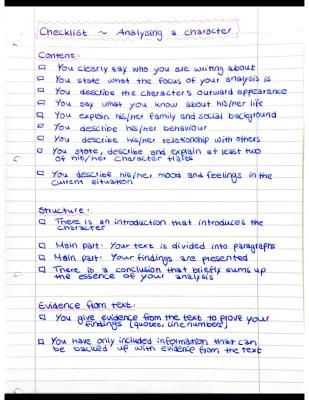 Checklist ~ Analysing a character
Content:
You clearly say who you are writing about
You state what the focus of your analysis is
You describe the character's outward appearance
You say what you know about his/her life
You explain his/her family and social background
You describe his/her behaviour
You describe his/her relationship with others
You state, describe and explain at least two
of his/her character traits
You describe his/her mood and feelings in the
current situation
Structure:
There is an introduction that introduces the
character
Main part: Your text is divided into paragraphs
Main part: Your findings are presented
There is a conclusion that briefly sums up
the essence of your analysis
Evidence from text:
You give evidence from the text to prove your
findings (quotes, line numbers)
You have only included information that can
be backed up with evidence from the text